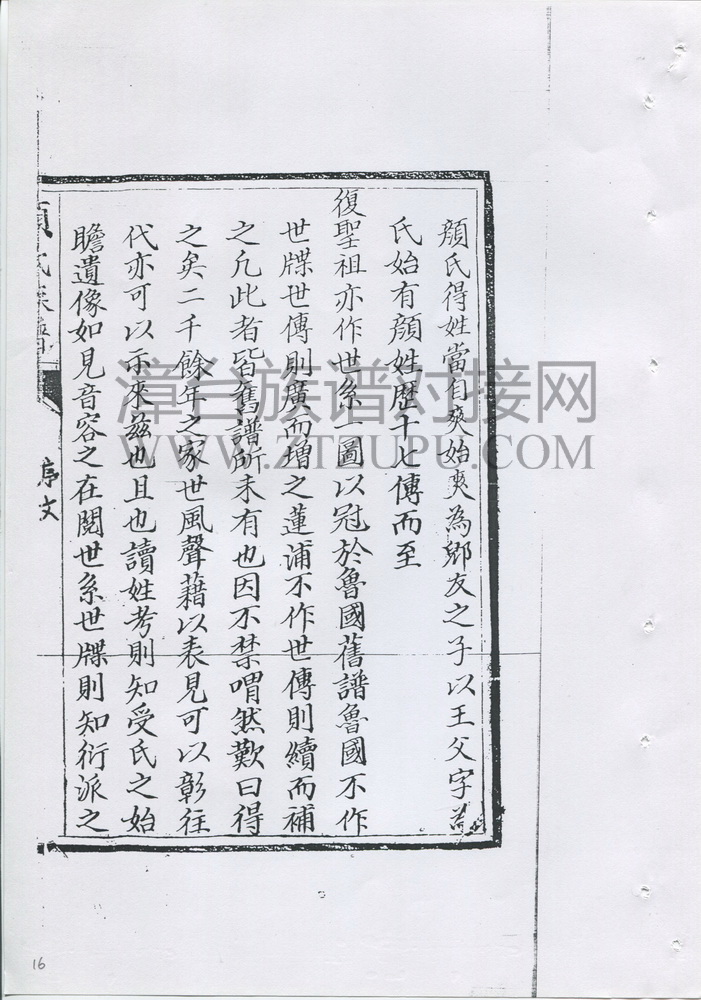 顏氏得姓當自爽始爽為鄉友之子以王父字為
氏始有顏姓歷十七傳而至
復聖祖亦作世系一圖以冠於魯國舊譜魯國不作
世牒世傳則廣而增之蓮浦不作世傳則續而補
之凡此者皆舊譜所未有也因不禁喟然歎曰得
之矣二千餘年之家世風聲藉以表見可以彰往
代亦可以示來茲也且也讀姓考則知受氏之始
瞻遺像如見音容之在閱世系世牒則知衍派之
序文
漳台族谱对接网
WWW.ZTZUPU.COM
16